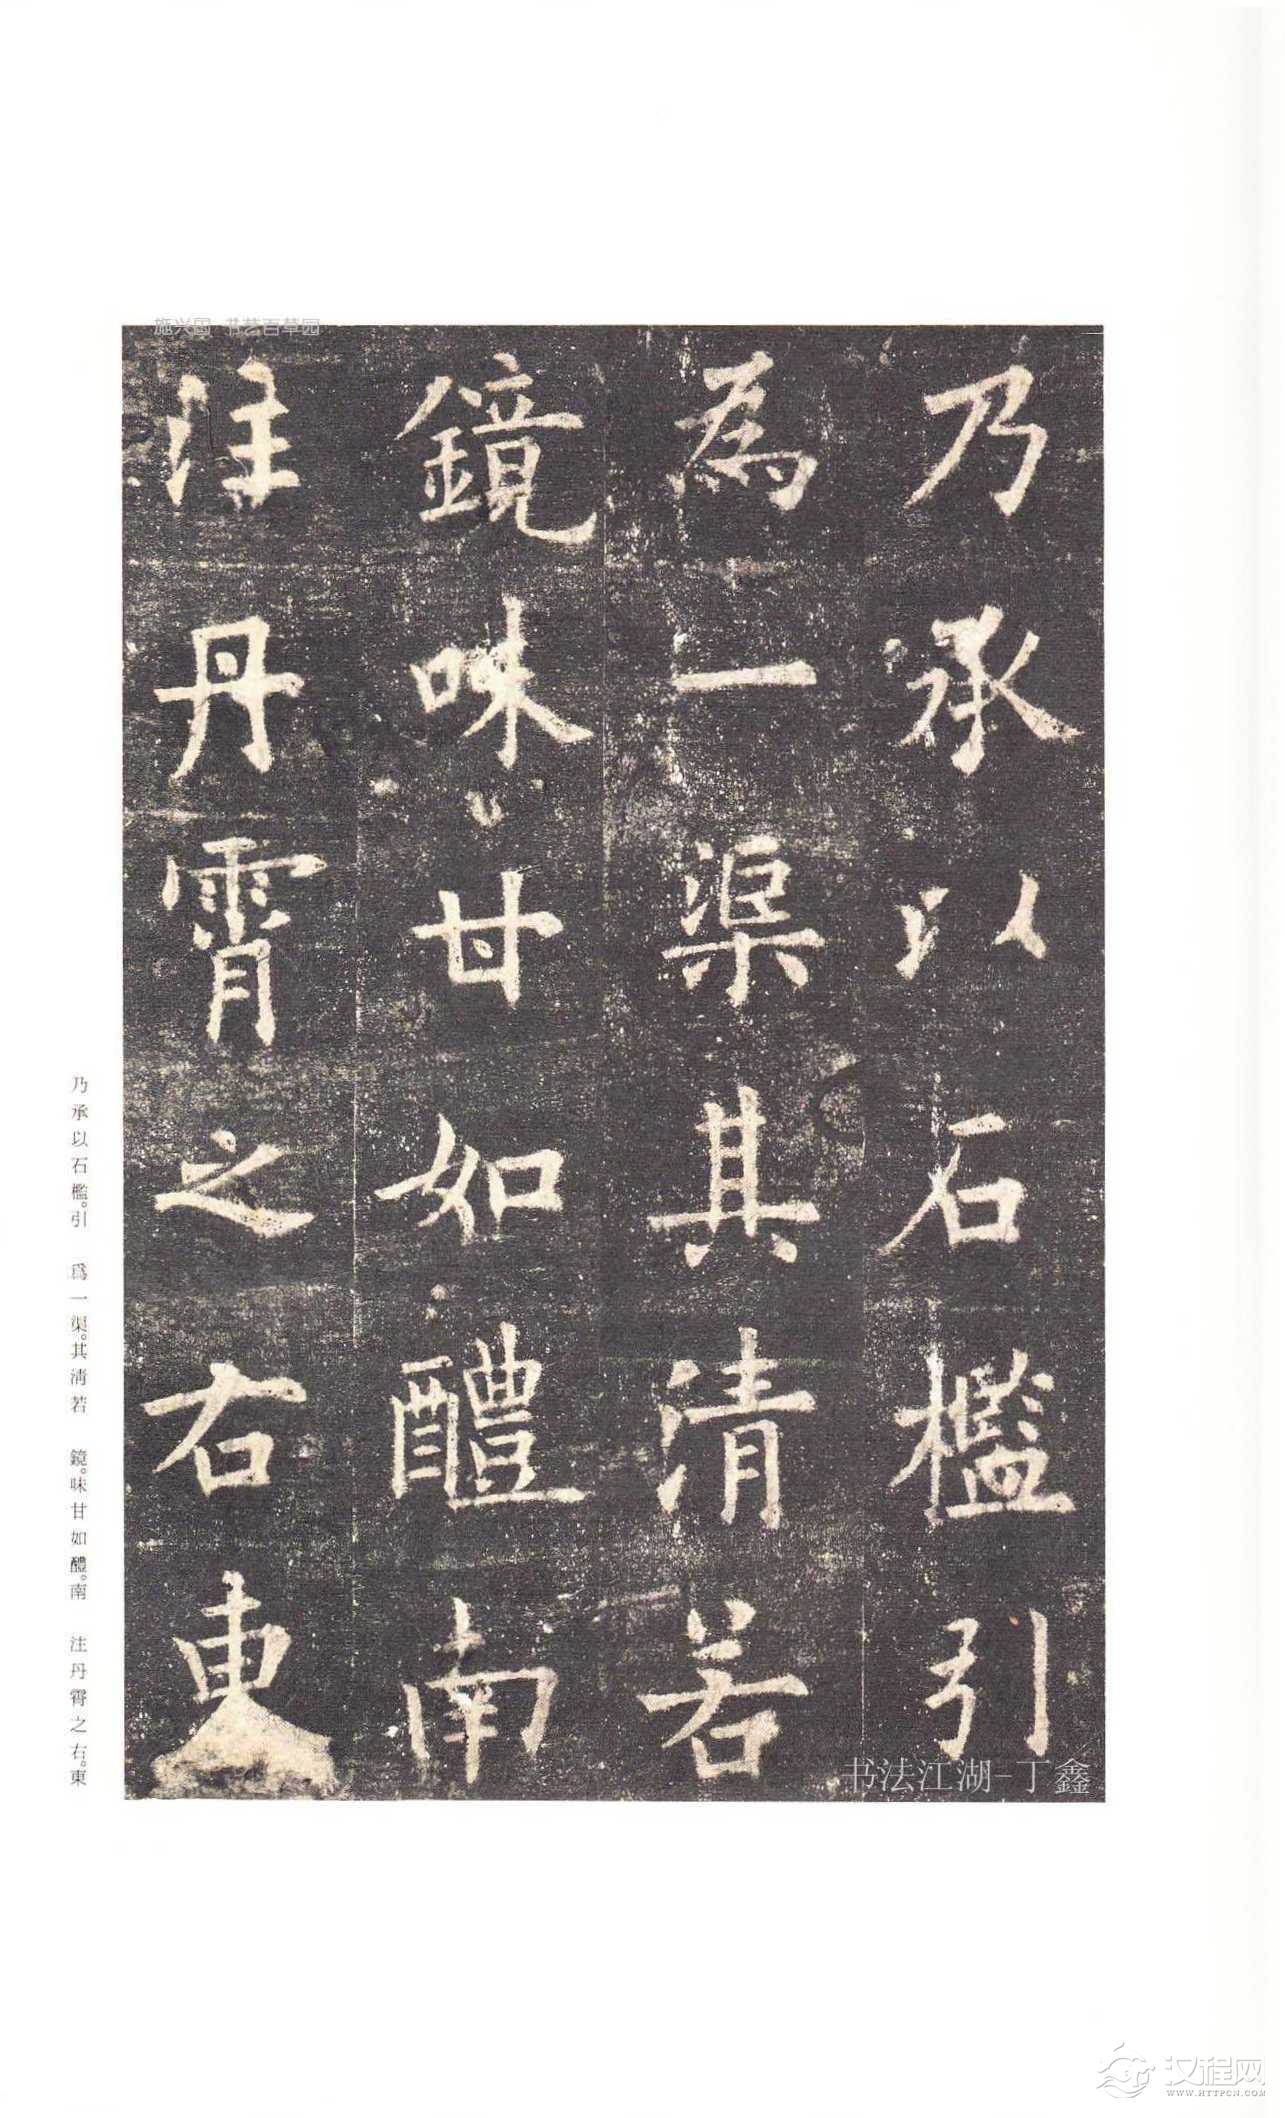 乃承以石檻引
為一渠其清若
鏡味甘如醴南
注丹霄之右東
乃承以石檻。引　爲一渠。其清若　鏡。味甘如醴。南　注丹霄之右。東
书艺百草园
书法江湖-丁鑫
汉程网
WWW.HTTPCN.COM